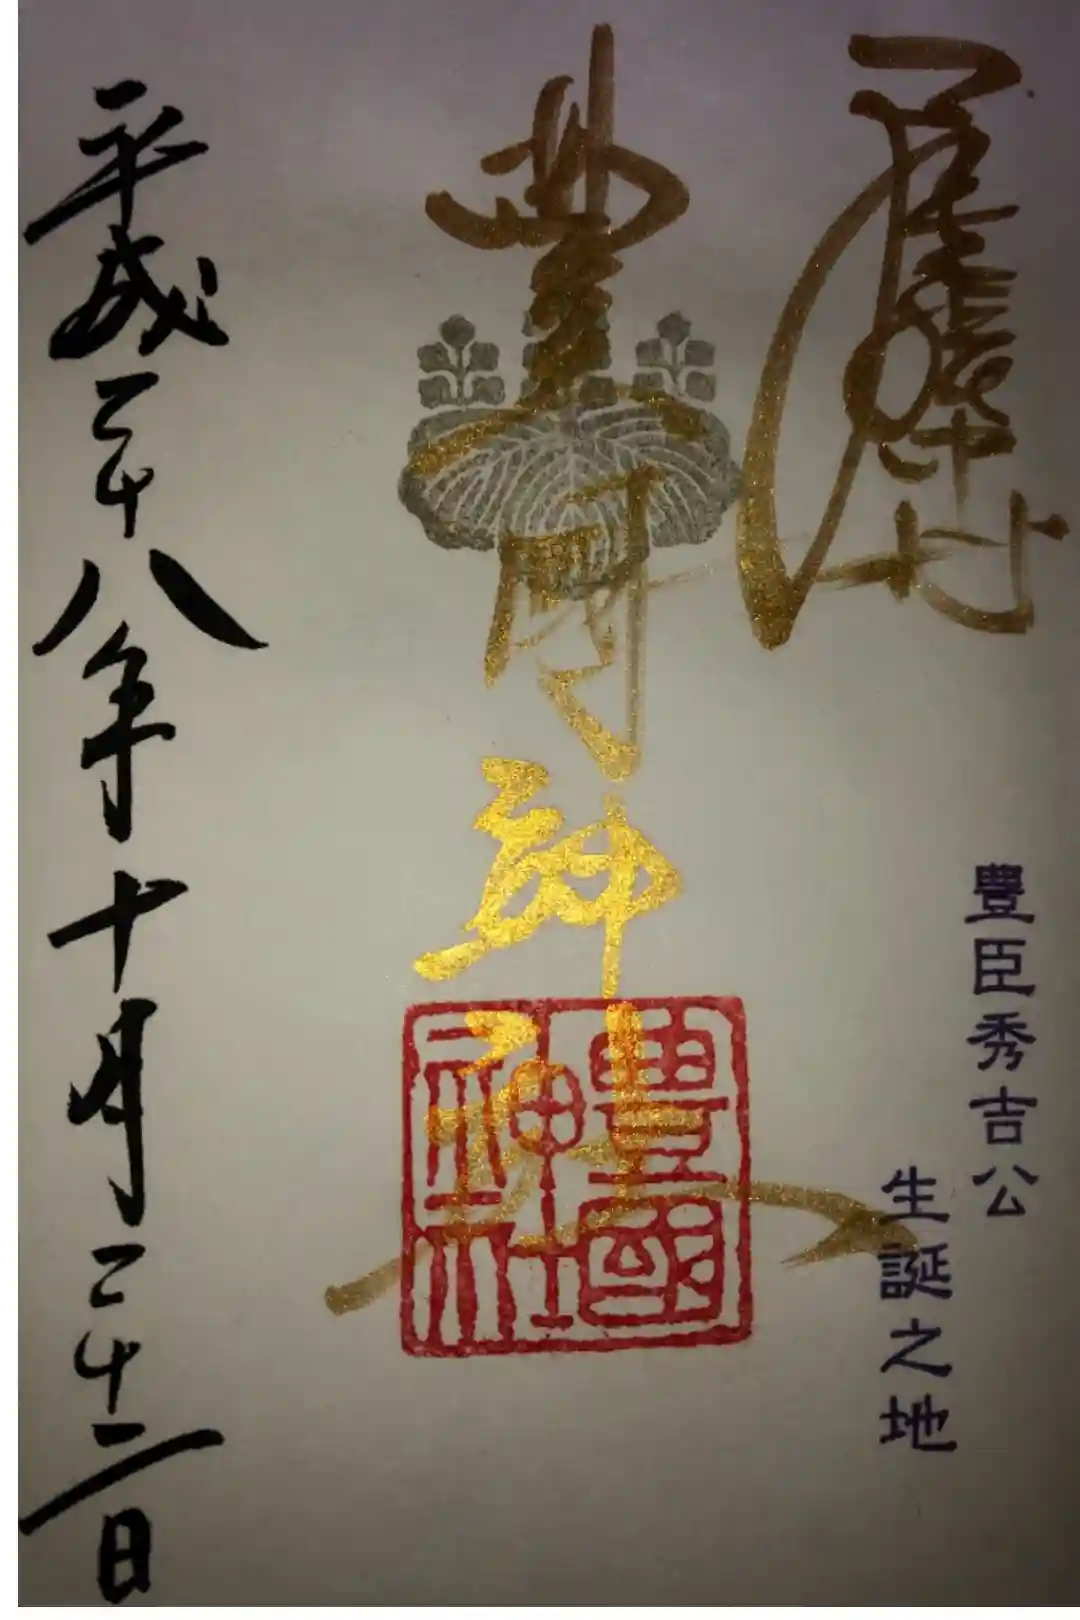 豊臣秀吉公
生誕之地
豊國神社
豊國神社
平成二十八年十月二十二日